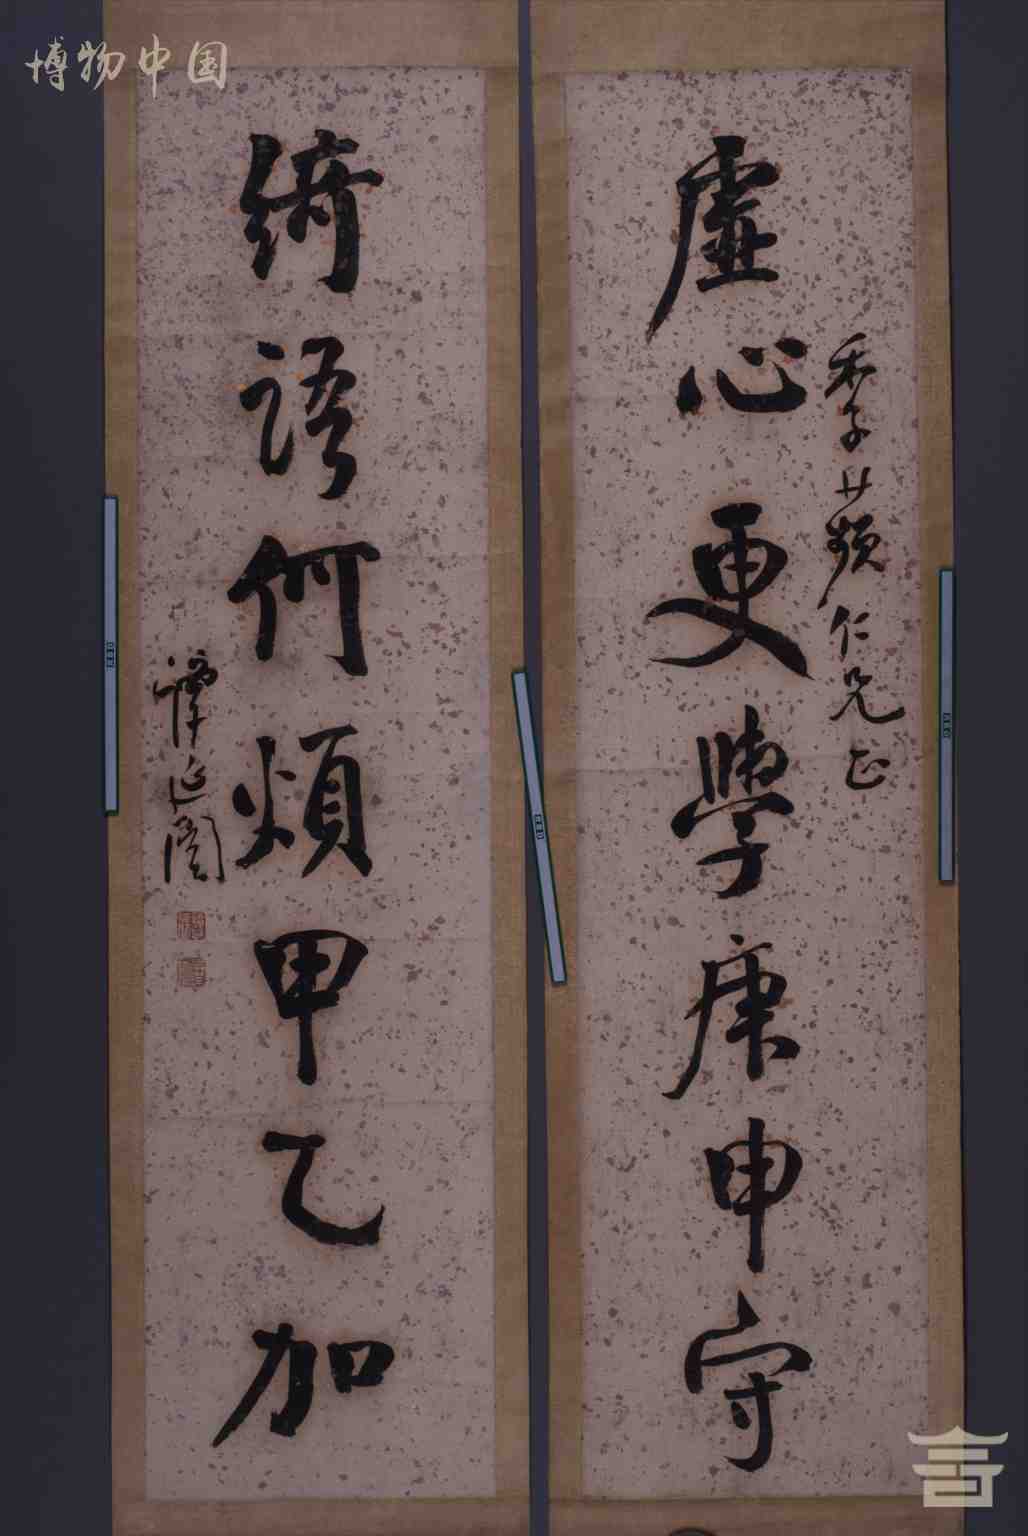 博物中国
季蘋仁兄正
虚心更學庚申守
綺語何煩甲乙加
譚延闓